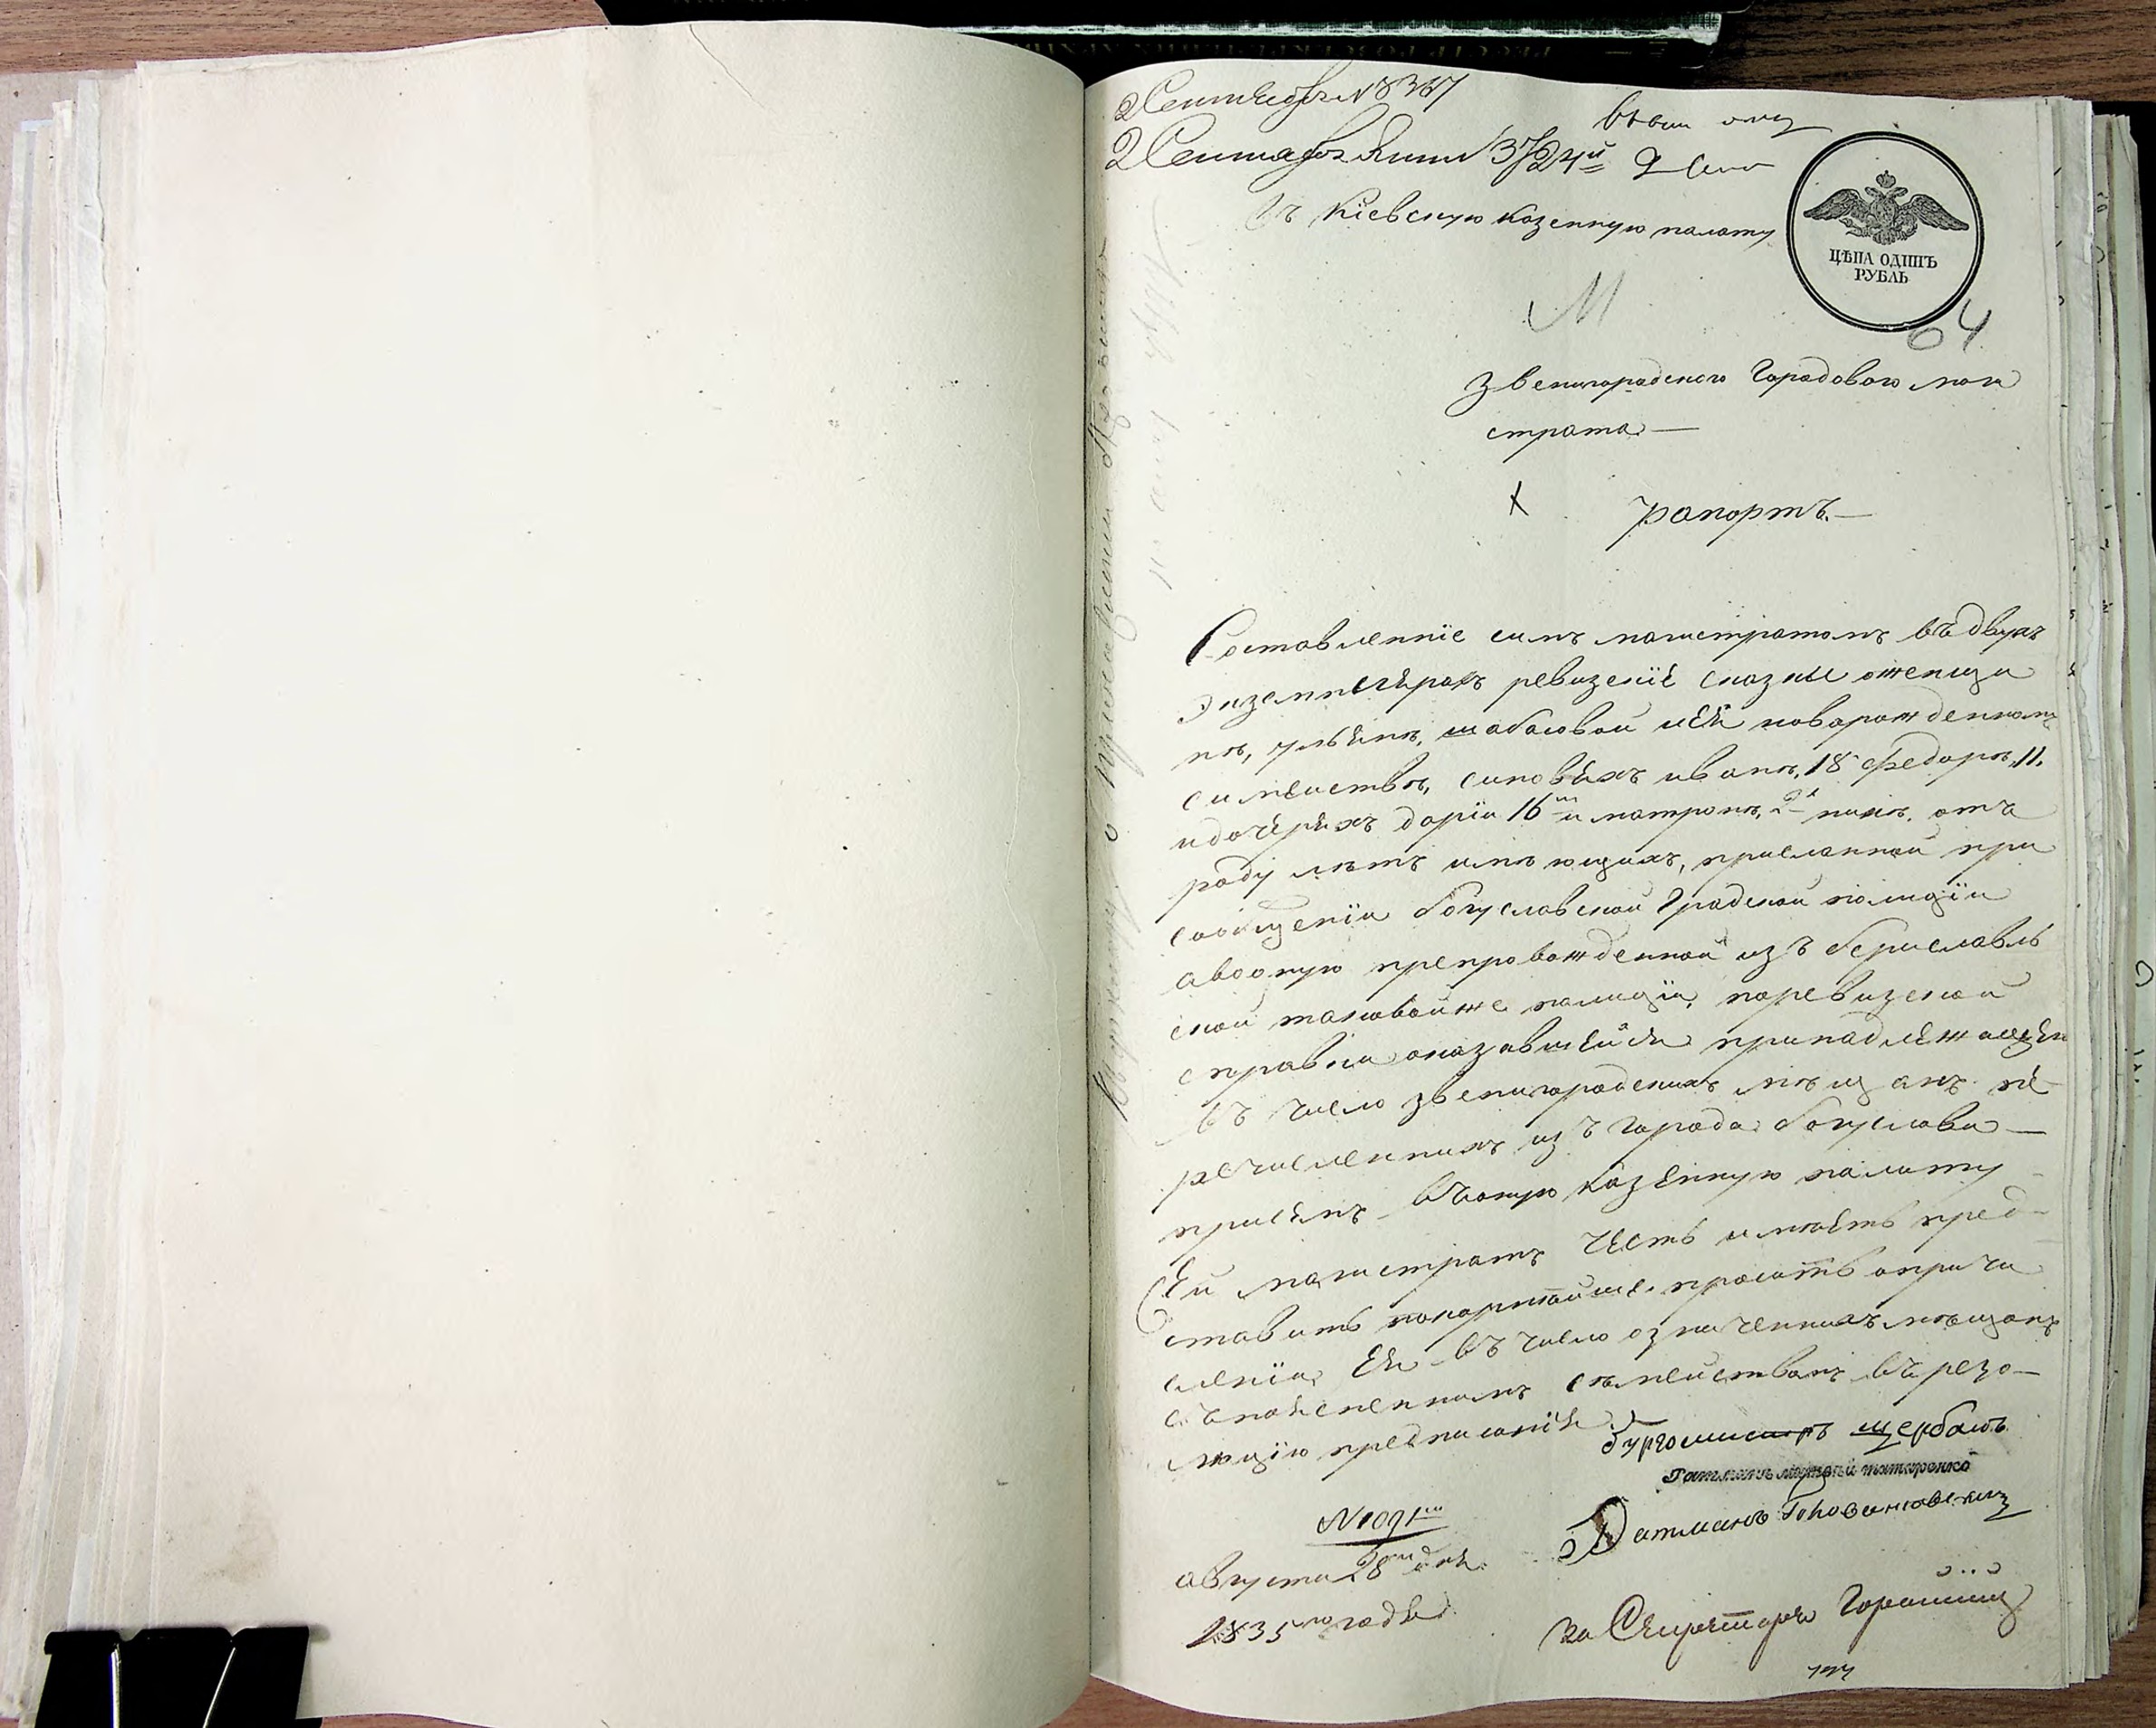 2 Сентября №
2 Сентября
въ Кіевскую Казенную палату
ЦѢНА ОДИНЪ
РУБЛЬ
64
Звенигородскаго Городового маги
страта
рапортъ.
Составленніе симъ магистратомъ въ двухъ
экземплярахъ ревизскіе сказки оженщи
нѣ, ульянѣ, шабасовой иея новорожденномъ
симействѣ, синовяхъ иванѣ, 18 федорѣ, 11.
идочеряхъ даріи 16 и матронѣ, 2 отъ
роду лѣтъ имѣющихъ, присланной при
сообщеніи богуславской Градской полиціи
авооную препровожденной изъ бериславль
ской таковойже полиціи, поревизской
справки оказавшейся принадлежащей
въ число звенигородскихъ мѣщанъ пе
речисленнихъ изъ города богуслава
присемъ въоную казенную палату
Сей магистратъ честь имѣетъ пред
ставить покорнѣйше просить опричи
сленіи, Ея въ число означеннихъ мѣщанъ
съ симействомъ въ резо
люцію предписанія
Бургомистръ щербак
Ратманъ татаренко
Ратманъ
№ 1091
августа 28 дня
1835 года
За Секретаря